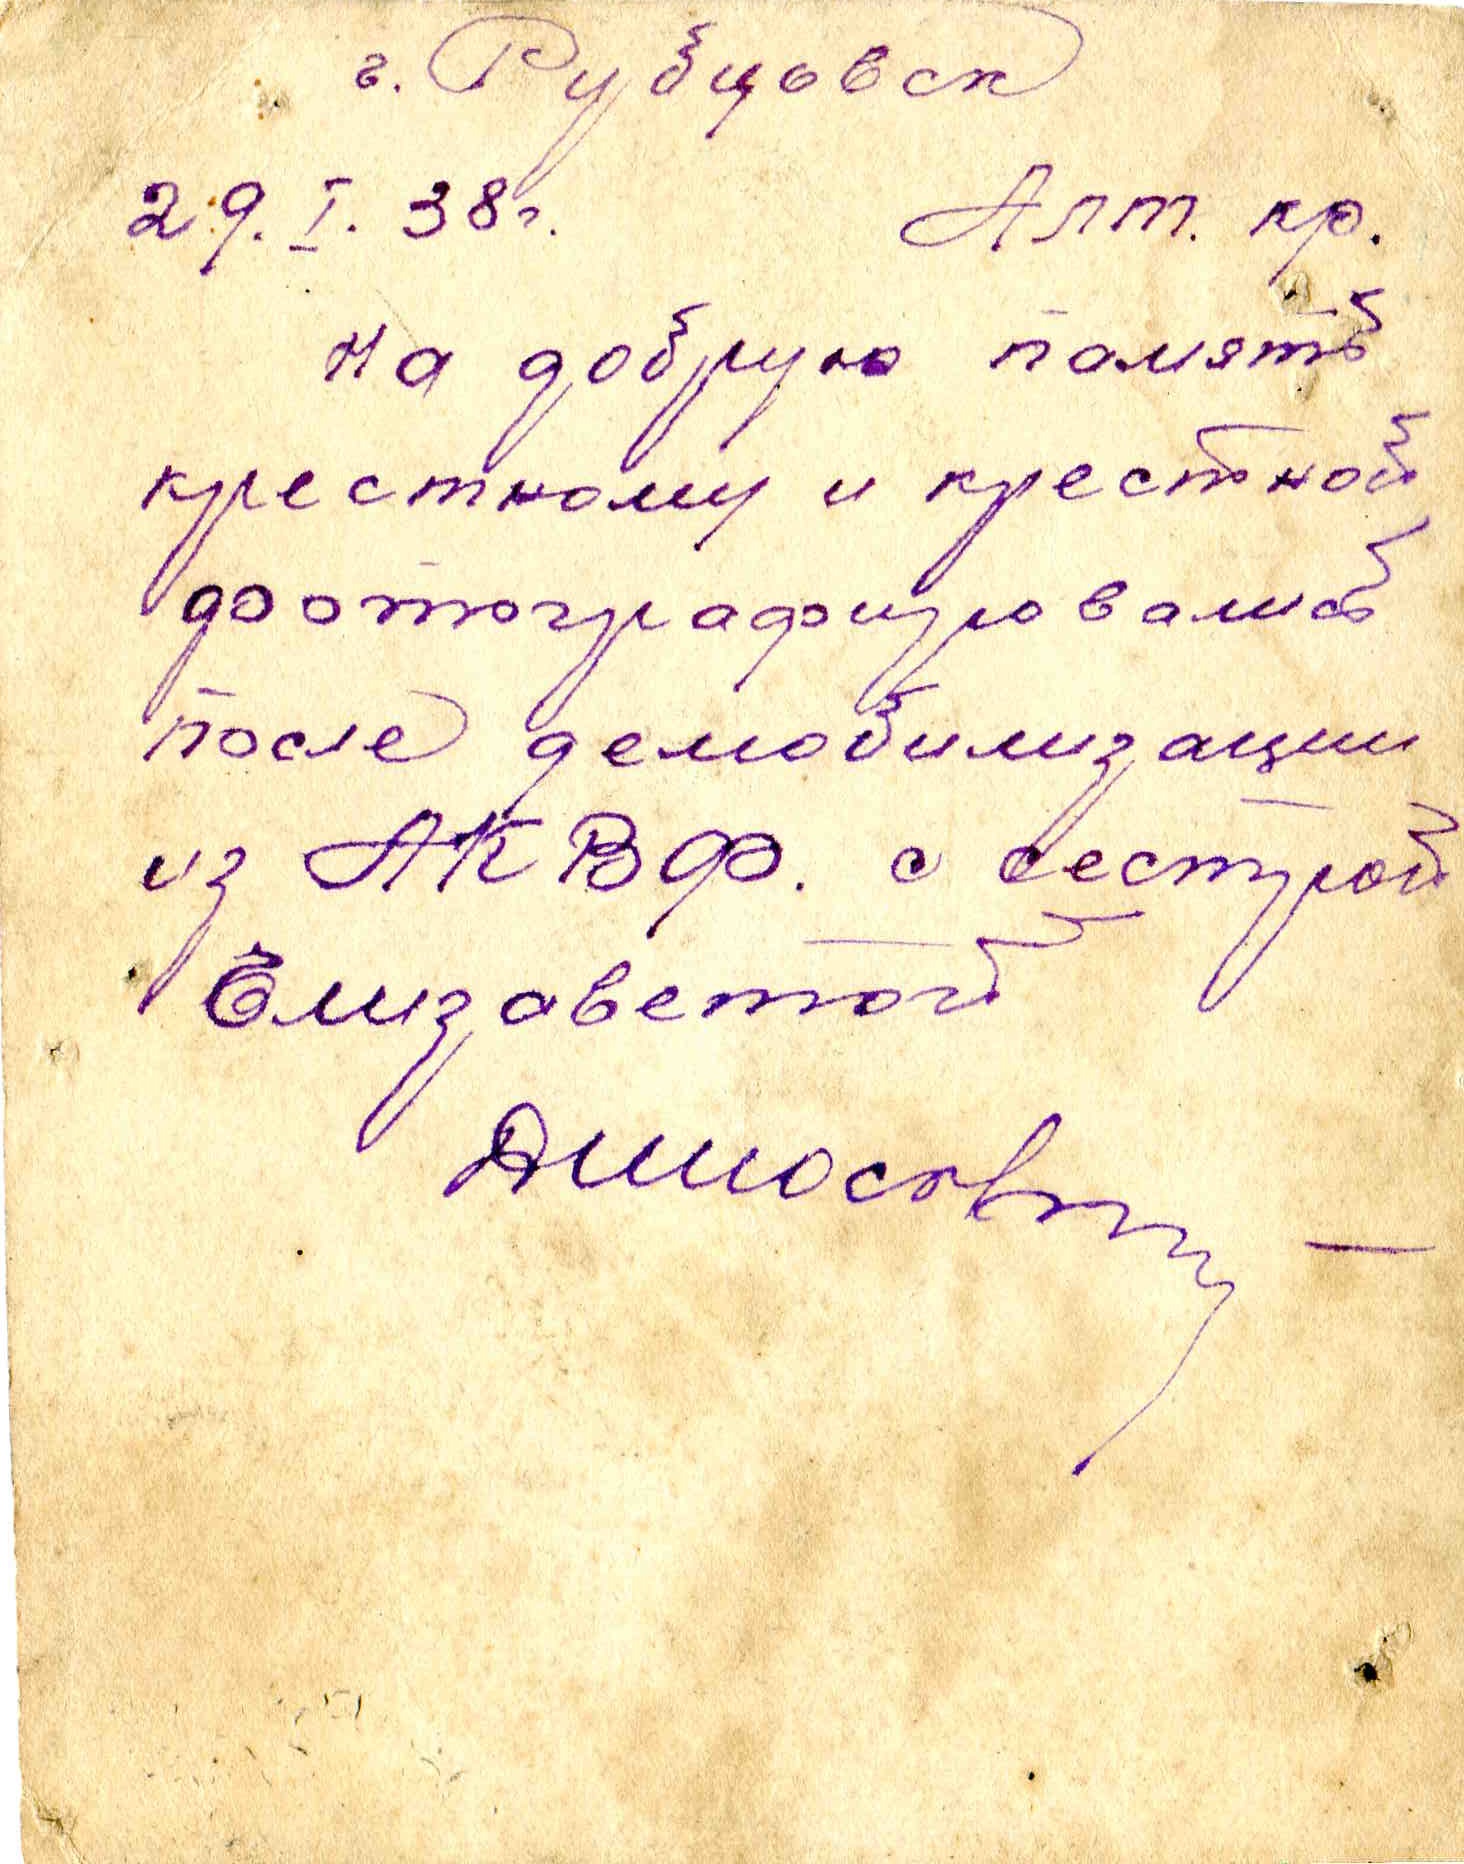 г. Рубцовск
29. I. 38г. Алт. кр.
на добрую память
крестному и крестной
фотографировались
после демобилизации
из АКВФ. с сестрой
Елизаветой